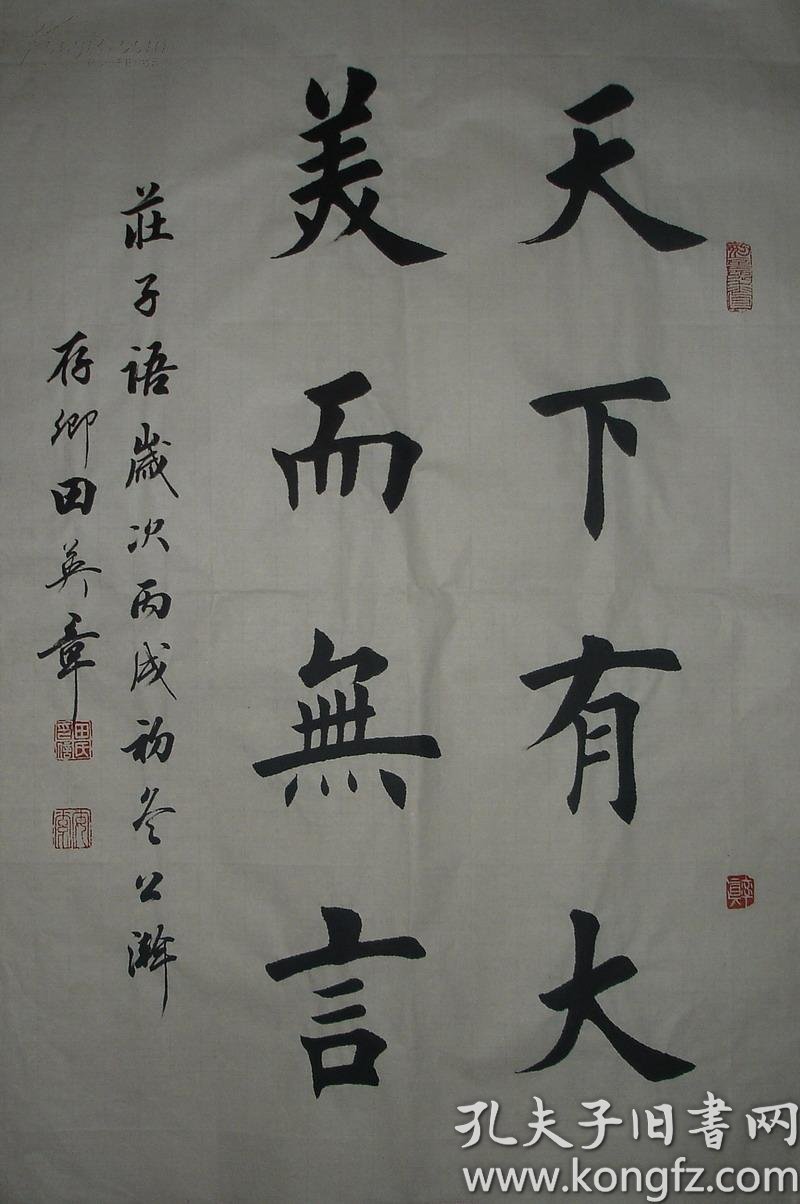 天下有大
美而無言
莊子語歲次丙戌初冬公瀚
存卿田英章
孔夫子旧書网
www.kongfz.com